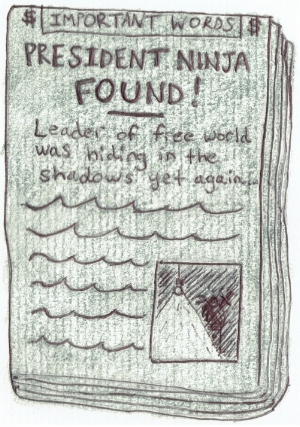 $ IMPORTANT WORDS $
PRESIDENT NINJA
FOUND!
Leader of free world
was hiding in the
shadows yet again...